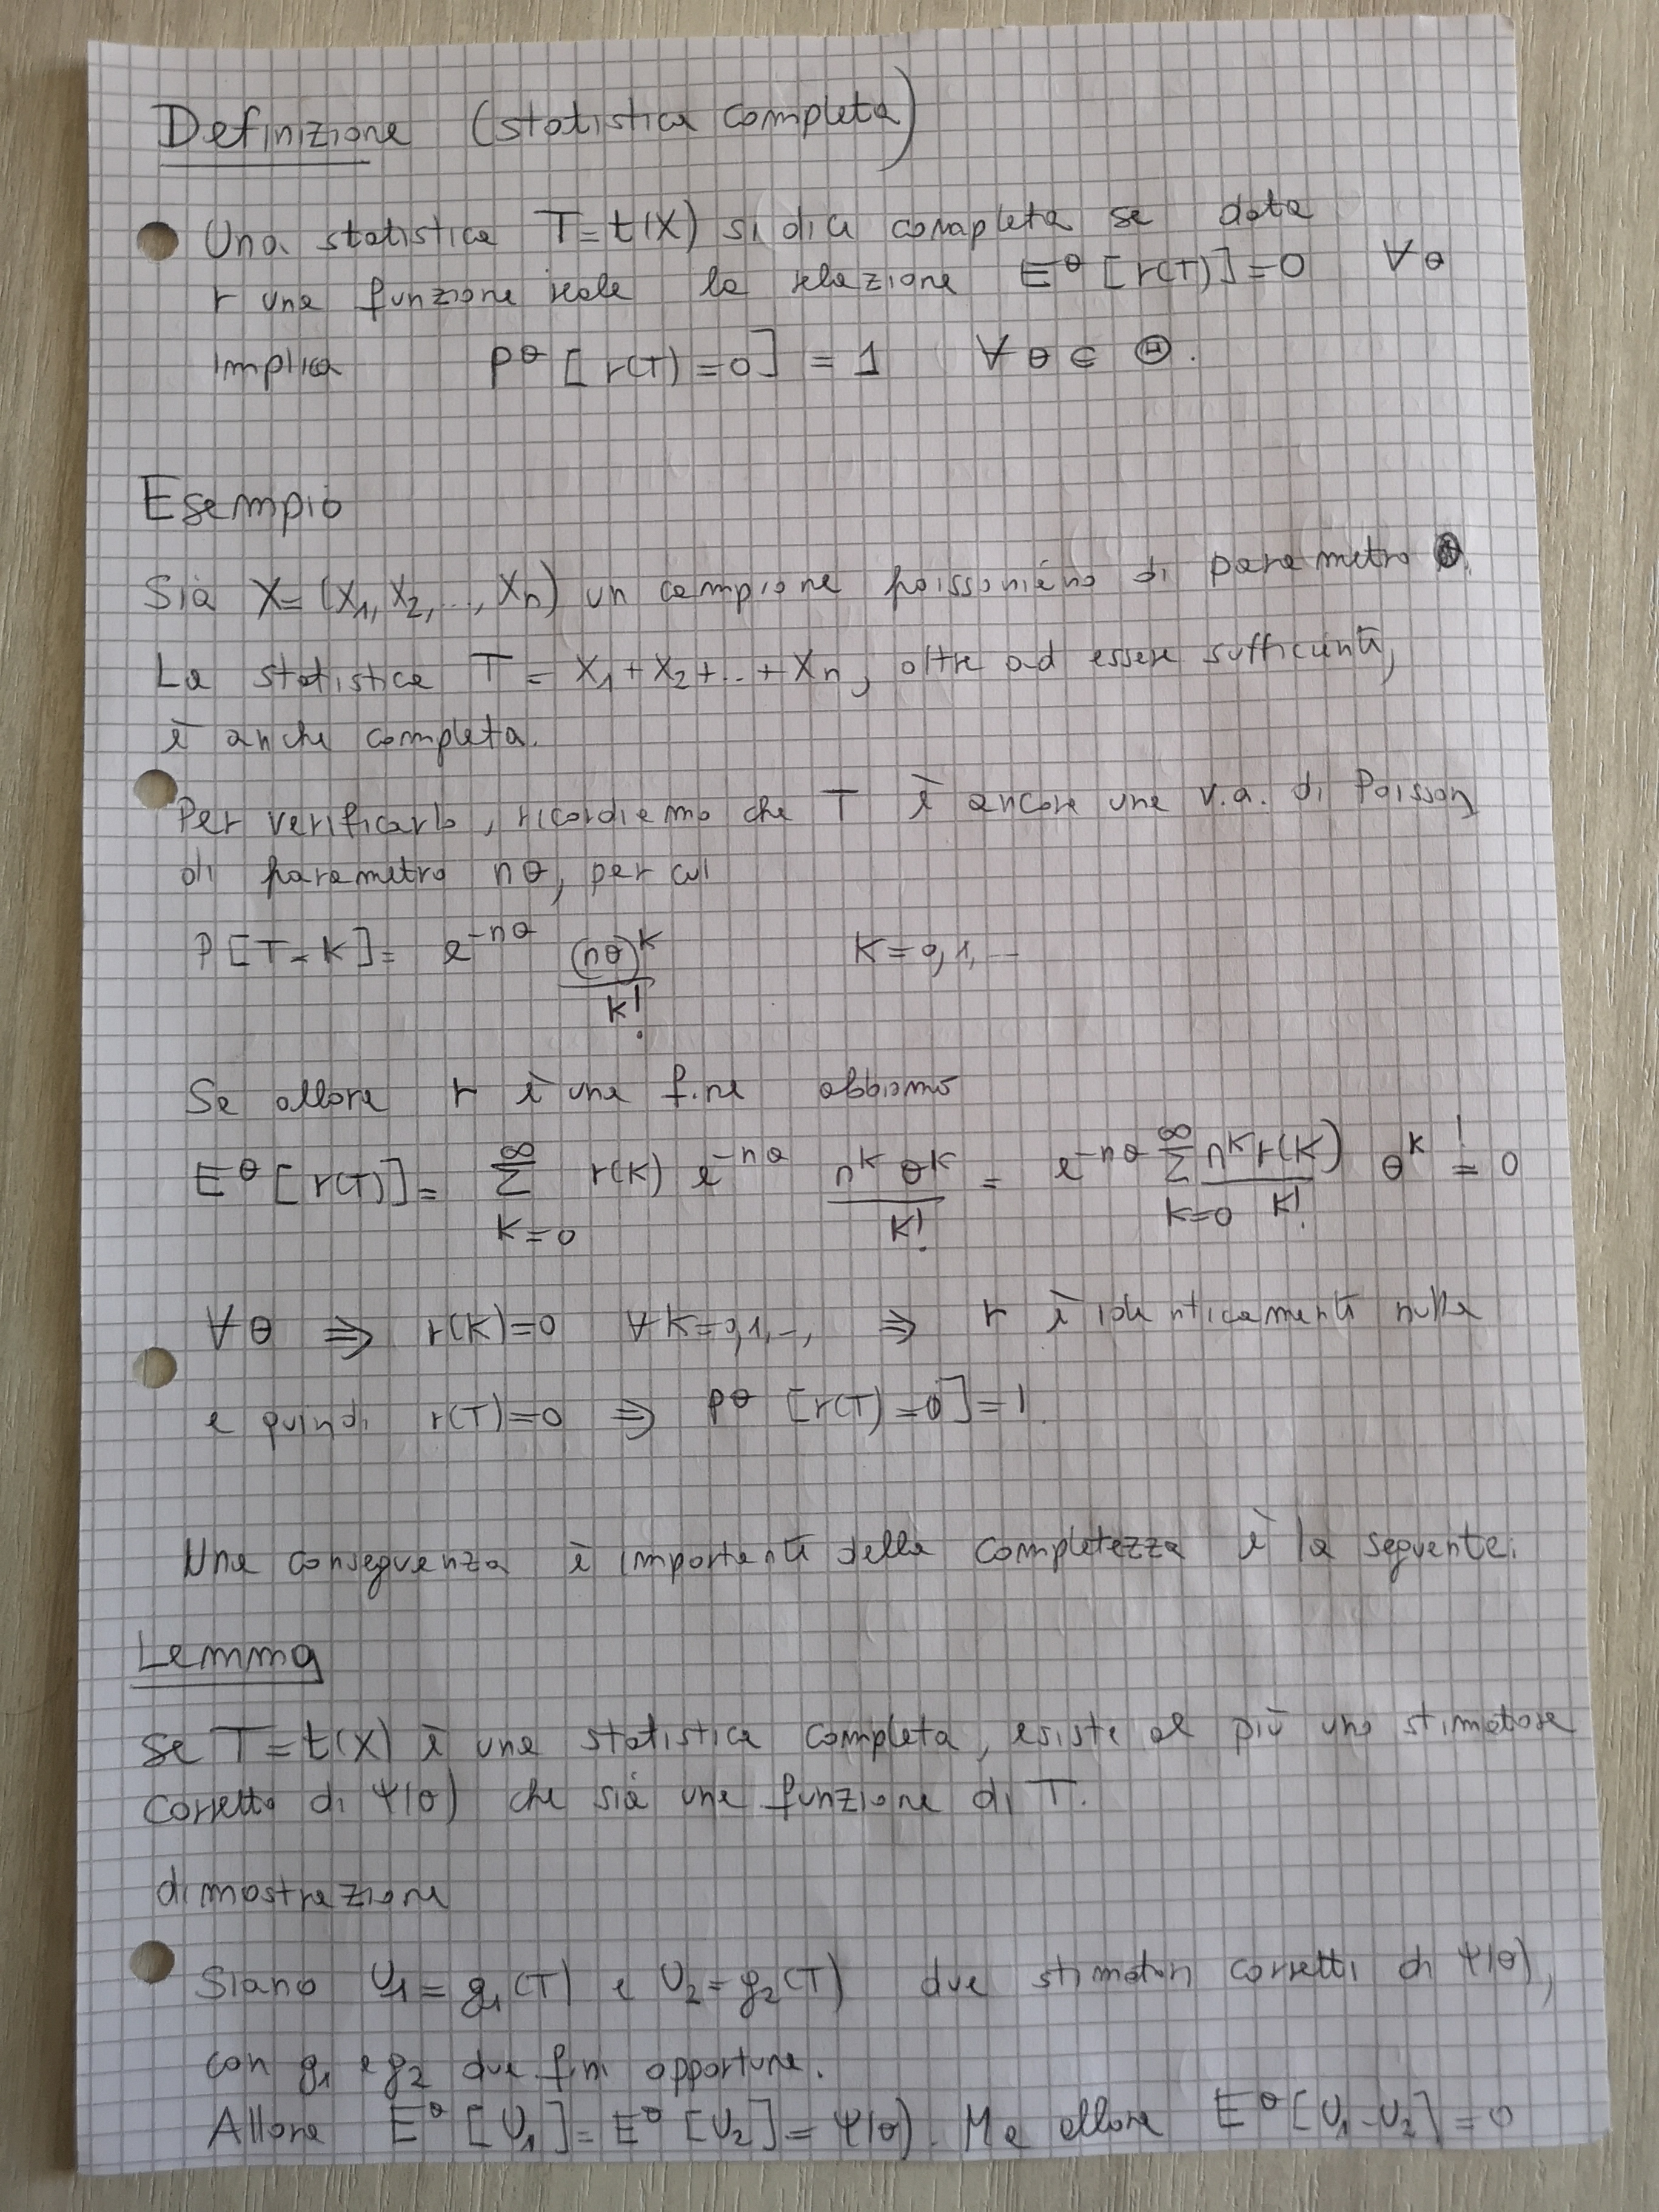 Definizione (statistica completa)
Una statistica T=t(X) si dice completa se data
r una funzione reale la relazione E^θ[r(T)]=0 ∀θ
implica P^θ[r(T)=0]=1 ∀θ∈Θ.
Esempio
Sia X=(X₁,X₂,...,Xn) un campione poissoniano di parametro θ.
La statistica T=X₁+X₂+..+Xn, oltre ad essere sufficiente,
è anche completa.
Per verificarlo, ricordiamo che T è ancora una v.a. di Poisson
di parametro nθ, per cui
P[T=K]= e^{-nθ} (nθ)^K/K! K=0,1,...
Se allora r è una f.ne abbiamo
E^θ[r(T)]= ∑_{K=0}^{∞} r(K) e^{-nθ} n^K θ^K/K! = e^{-nθ} ∑_{K=0}^{∞} n^K r(K)/K! θ^K =! 0
∀θ ⇒ r(K)=0 ∀K=0,1,..., ⇒ r è identicamente nulla
e quindi r(T)=0 ⇒ P^θ[r(T)=0]=1.
Una conseguenza è importante della completezza è la seguente:
Lemma
Se T=t(X) è una statistica completa, esiste al più uno stimatore
corretto di ψ(θ) che sia una funzione di T.
dimostrazione
Siano U₁=g₁(T) e U₂=g₂(T) due stimatori corretti di ψ(θ),
con g₁ e g₂ due f.ni opportune.
Allora E^θ[U₁]=E^θ[U₂]=ψ(θ). Ma allora E^θ[U₁-U₂]=0